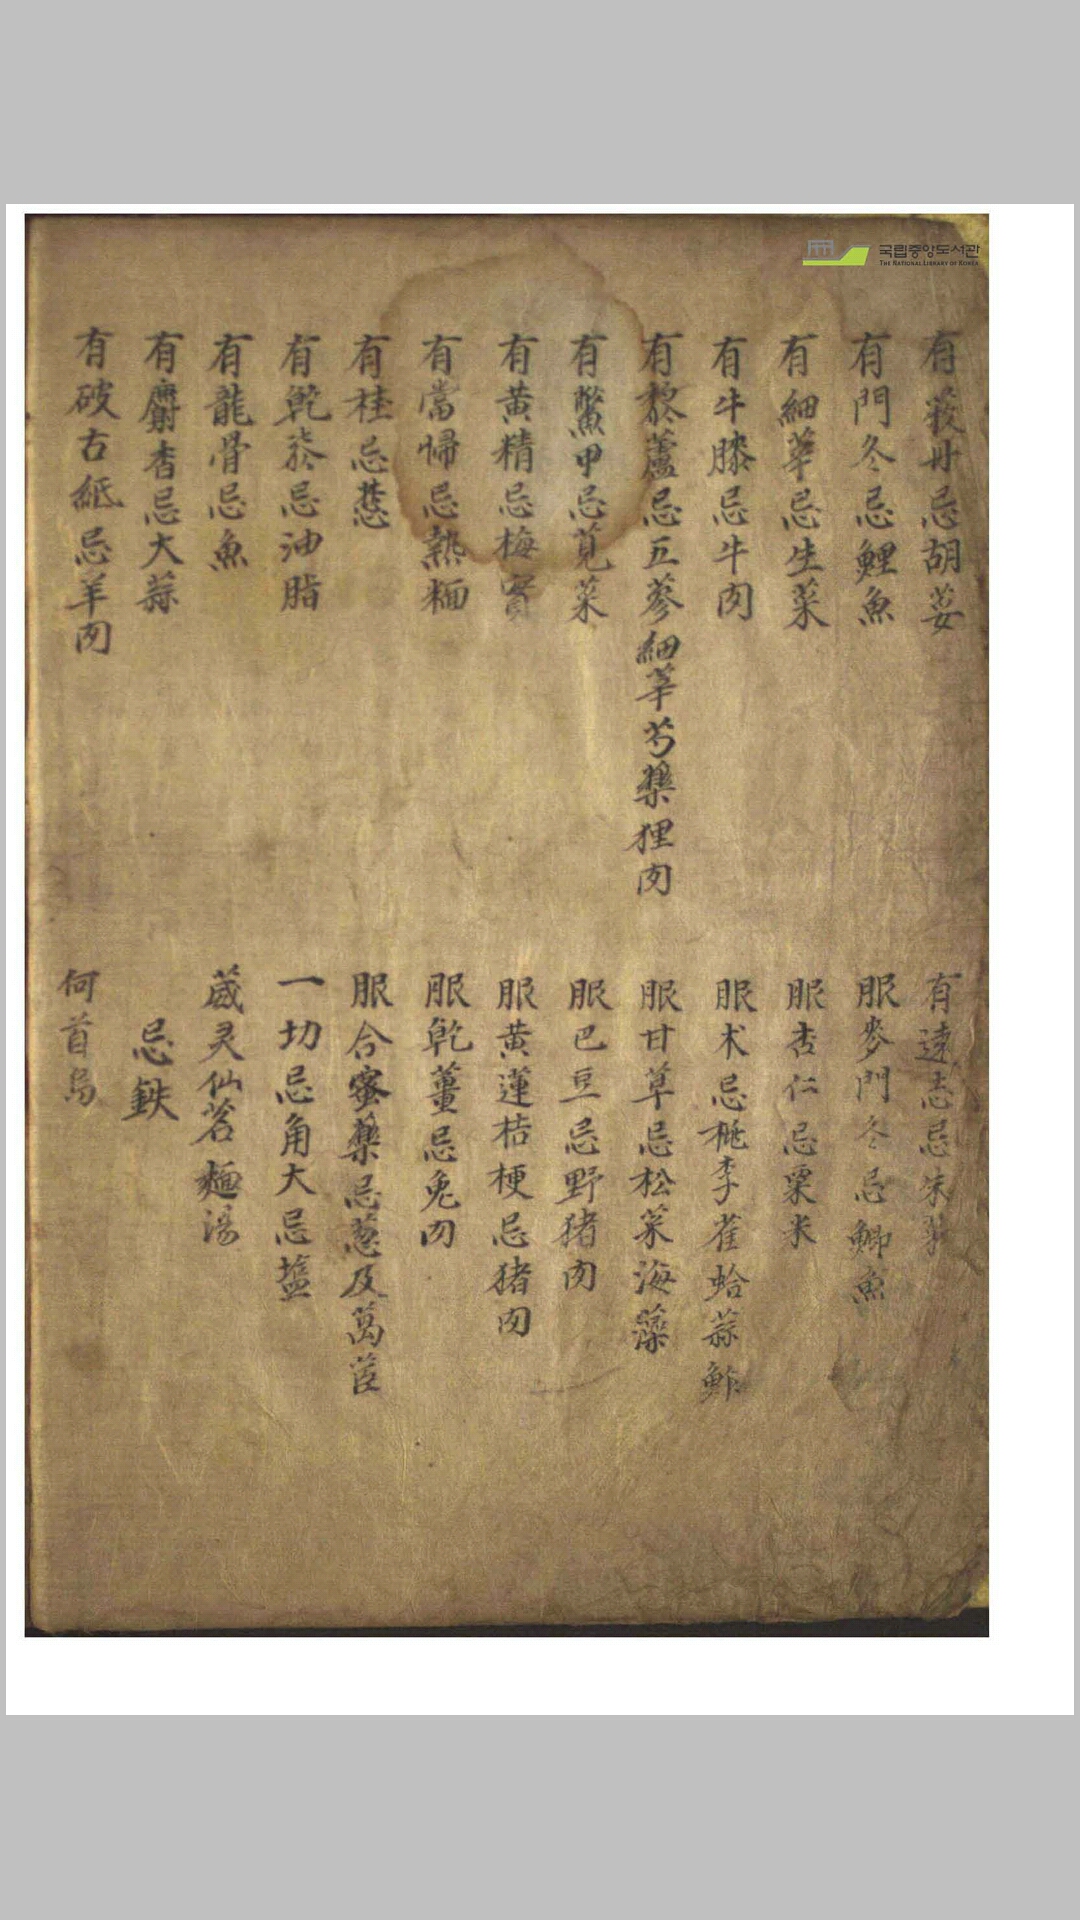 국립중앙도서관
THE NATIONAL LIBRARY OF KOREA
有丹忌胡荽
有門冬忌鯉魚
有細莘忌生菜
有牛膝忌牛肉
有藜蘆忌五蔘細莘芍藥狸肉
有鱉甲忌莧菜
有黃精忌梅實
有當帰忌熱麵
有桂忌葱
有乾菸忌油脂
有龍骨忌魚
有麝香忌大蒜
有破古紙忌羊肉
有遠志忌朱
服麥門冬忌鯽魚
服杏仁忌粟米
服朮忌桃李雀蛤蒜鮓
服甘草忌松菜海藻
服巴豆忌野猪肉
服黃蓮桔梗忌猪肉
服乾薑忌兔肉
服合蜜藥忌葱及萵苣
一切忌角大忌塩
葳灵仙茗麵湯
忌鉄
何首烏